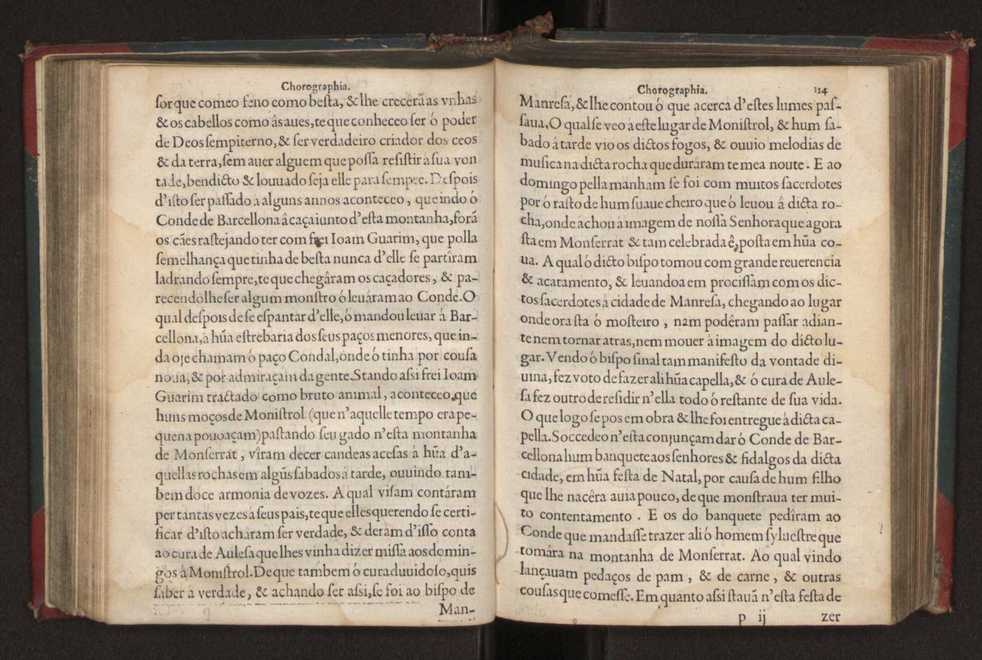 Chorographia.
ſor que comeo feno como beſta, & lhe crecerã as vnhas
& os cabellos como âs aues, te que conheceo ſer ó poder
de Deos ſempiterno, & ſer verdadeiro criador dos ceos
& da terra, ſem auer alguem que poſſa reſiſtir à ſua von
tade, bendicto & louuado ſeja elle para ſempre. Deſpois
d'iſto ſer paſſado a alguns annos aconteceo, que indo ó
Conde de Barcellona â caça iunto d'eſta montanha, forã
os cães raſtejando ter com frei Ioam Guarim, que polla
ſemelhança que tinha de beſta nunca d'elle ſe partiram
ladrando ſempre, te que chegâram os caçadores, & pa-
recendolhe ſer algum monſtro ó leuáram ao Conde. O
qual deſpois de ſe eſpantar d'elle, ó mandou leuar â Bar-
cellona, à hũa eſtrebaria dos ſeus paços menores, que in-
da oje chamam ó paço Condal, onde ó tinha por couſa
noua, & por admiraçam da gente. Stando aſsi frei Ioam
Guarim tractado como bruto animal, aconteceo, que
huns moços de Moniſtrol (que n'aquelle tempo era pe-
quena pouoaçam) paſtando ſeu gado n'eſta montanha
de Monſerrat, viram decer candeas aceſas à hũa d'a-
quellas rochas em algũs ſabados â tarde, ouuindo tam-
bem doce armonia de vozes. A qual viſam contâram
per tantas vezes a ſeus pais, te que elles querendo ſe certi-
ficar d'iſto acharam ſer verdade, & deram d'iſſo conta
ao cura de Auleſa que lhes vinha dizer miſſa aos domin-
gos â Moniſtrol. De que tambem ó cura duuidoſo, quis
ſaber â verdade, & achando ſer aſsi, ſe foi ao biſpo de
Man-
Chorographia. 114
Manreſa, & lhe contou ó que acerca d'eſtes lumes paſ-
ſaua, O qual ſe veo à eſte lugar de Moniſtrol, & hum ſa-
bado á tarde vio os dictos fogos, & ouuio melodias de
muſica na dicta rocha que duráram te mea noute. E ao
domingo pella manham ſe foi com muitos ſacerdotes
por ó raſto de hum ſuaue cheiro que ó leuou â dicta ro-
cha, onde achou à imagem de noſſa Senhora que agora
ſta em Monſerrat & tam celebrada ê, poſta em hũa co-
ua. A qual ó dicto biſpo tomou com grande reuerencia
& acatamento, & leuandoa em prociſſam com os dic-
tos ſacerdotes à cidade de Manreſa, chegando ao lugar
onde ora ſta ó moſteiro, nam podêram paſſar adian-
te nem tornar atras, nem mouer à imagem do dicto lu-
gar. Vendo ó biſpo ſinal tam manifeſto da vontade di-
uina, fez voto de fazer ali hũa capella, & ó cura de Aule-
ſa fez outro de reſidir n'ella todo ó reſtante de ſua vida.
O que logo ſe pos em obra & lhe foi entregue à dicta ca-
pella. Soccedeo n'eſta conjunçam dar ó Conde de Bar-
cellona hum banquete aos ſenhores & fidalgos da dicta
cidade, em hũa feſta de Natal, por cauſa de hum filho
que lhe nacêra auia pouco, de que monſtraua ter mui-
to contentamento. E os do banquete pediram ao
Conde que mandaſſe trazer ali ó homem ſylueſtre que
tomâra na montanha de Monſerrat. Ao qual vindo
lançauam pedaços de pam, & de carne, & outras
couſas que comeſſe. Em quanto aſsi ſtauã n'eſta feſta de
p ij zer